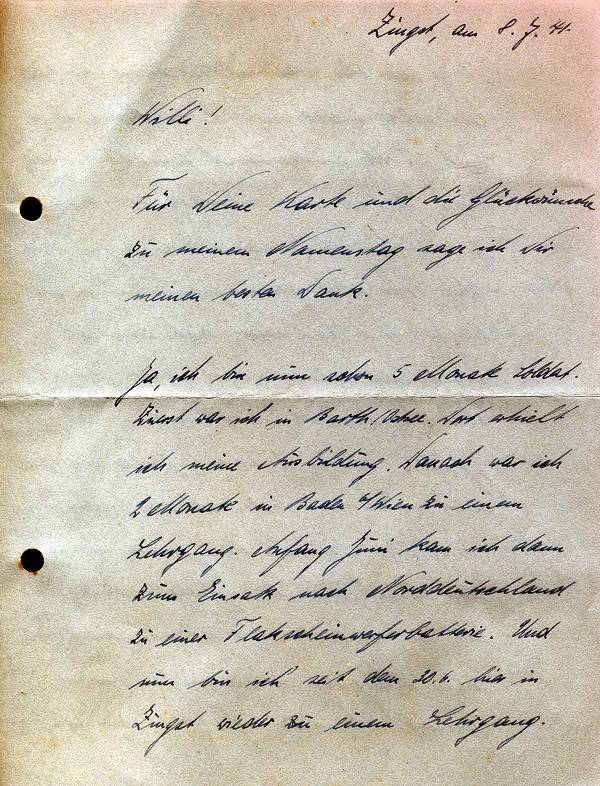 Zingst, am 8. 7. 44.
Willi!
Für Deine Karte und die Glückwünsche
zu meinem Namenstag sage ich Dir
meinen besten Dank.
Ja, ich bin nun schon 5 Monate Soldat.
Zuerst war ich in Barth/Ostsee. Dort erhielt
ich meine Ausbildung. Danach war ich
2 Monate in Baden b/Wien zu einem
Lehrgang. Anfang Juni kam ich dann
zum Einsatz nach Norddeutschland
zu einer Flakscheinwerferbatterie. Und
nun bin ich seit dem 20.6. hier in
Zingst wieder zu einem Lehrgang.